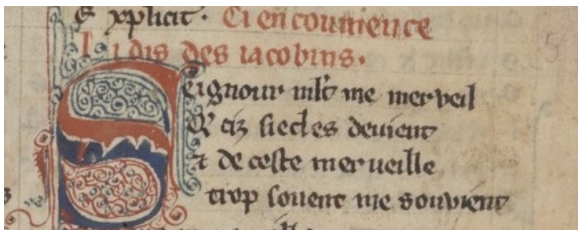 explicit. Ci encoumence
Li dis des iacobins.
Seignour mlt me merveil
Q̃ ciz siecles devient
τ de ceste merveille
trop souent me souvient